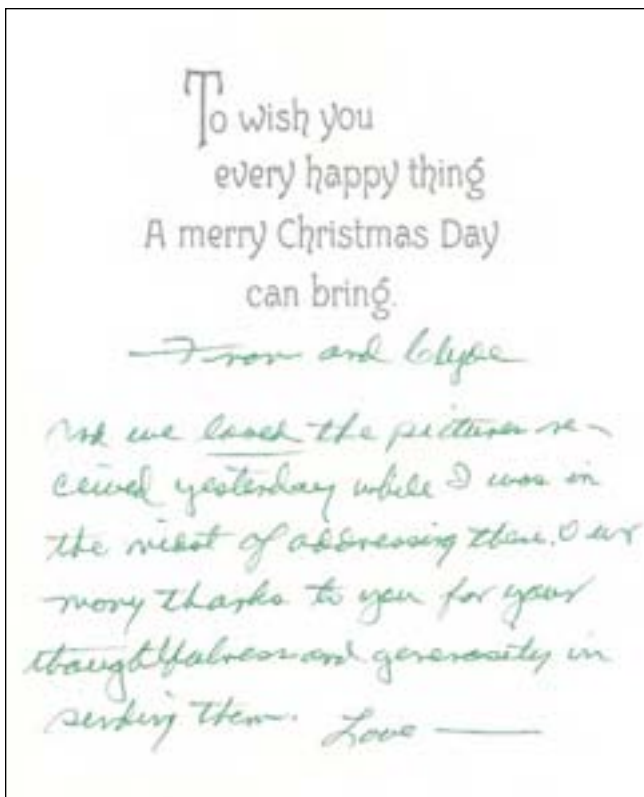 To wish you
every happy thing
A merry Christmas Day
can bring.
and Clyde
we loved the pictures re-
ceived yesterday while I was in
the midst of addressing these. Our
many thanks to you for your
thoughtfulness and generosity in
sending them. Love —